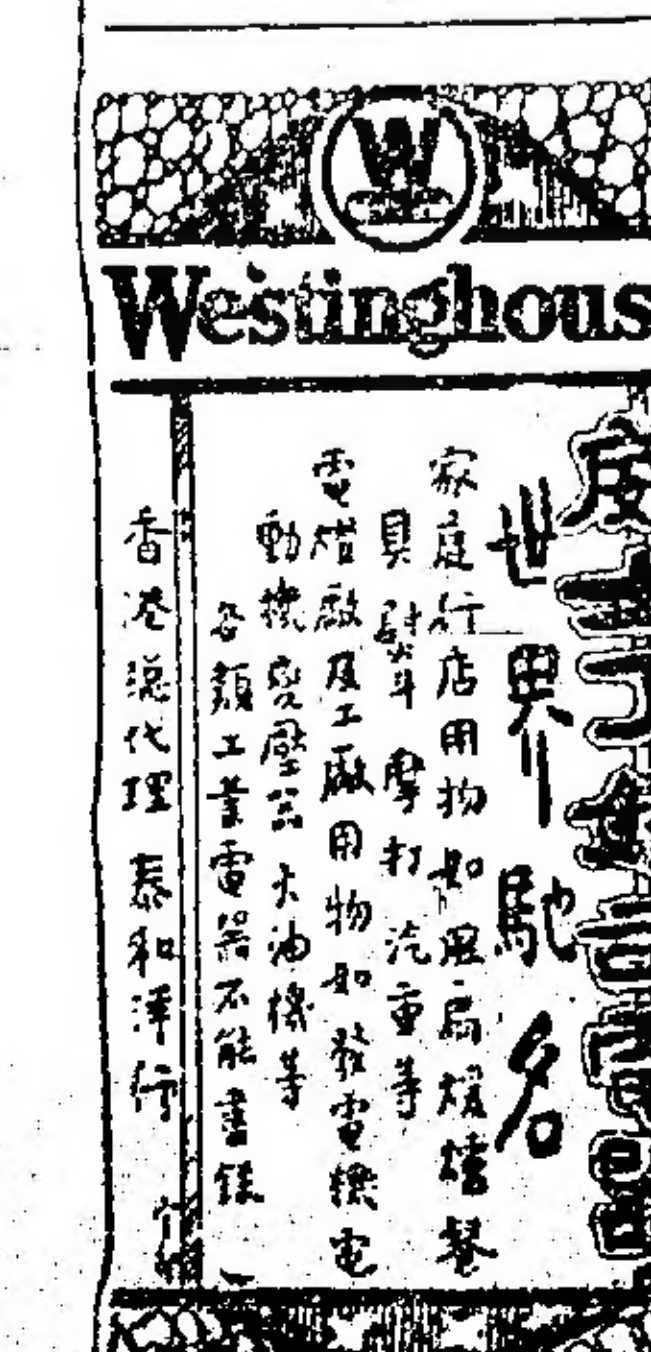 W
Westinghous
世界馳名
家庭行店用物如風扇煖爐餐
具熨斗摩打汽車等
電燈廠及工廠用物如發電機電
動機變壓器火油機等
各類工業電器不能盡錄
香港總代理泰和洋行